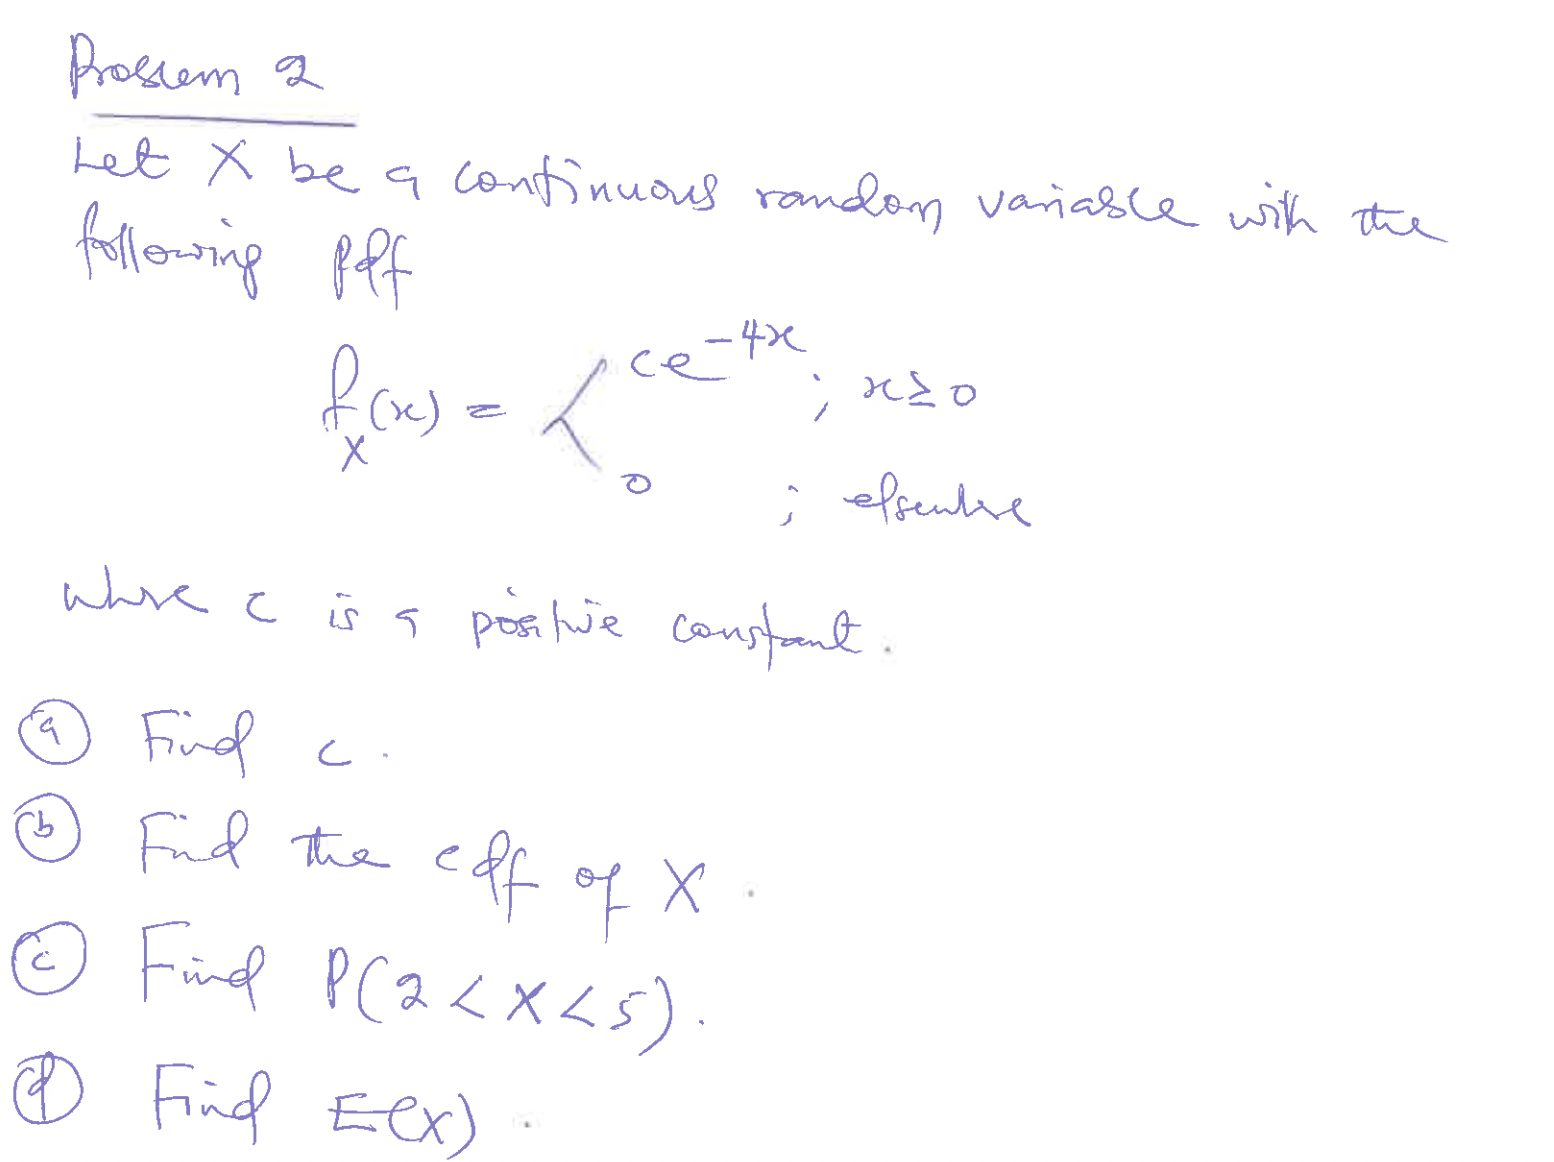 Problem 2
Let X be a continuous random variable with the
following pdf
f_X(x) = { ce^{-4x} ; x ≥ 0
0 ; elsewhere
where c is a positive constant.
(a) Find c.
(b) Find the cdf of X.
(c) Find P(2 < X < 5).
(d) Find E(X).